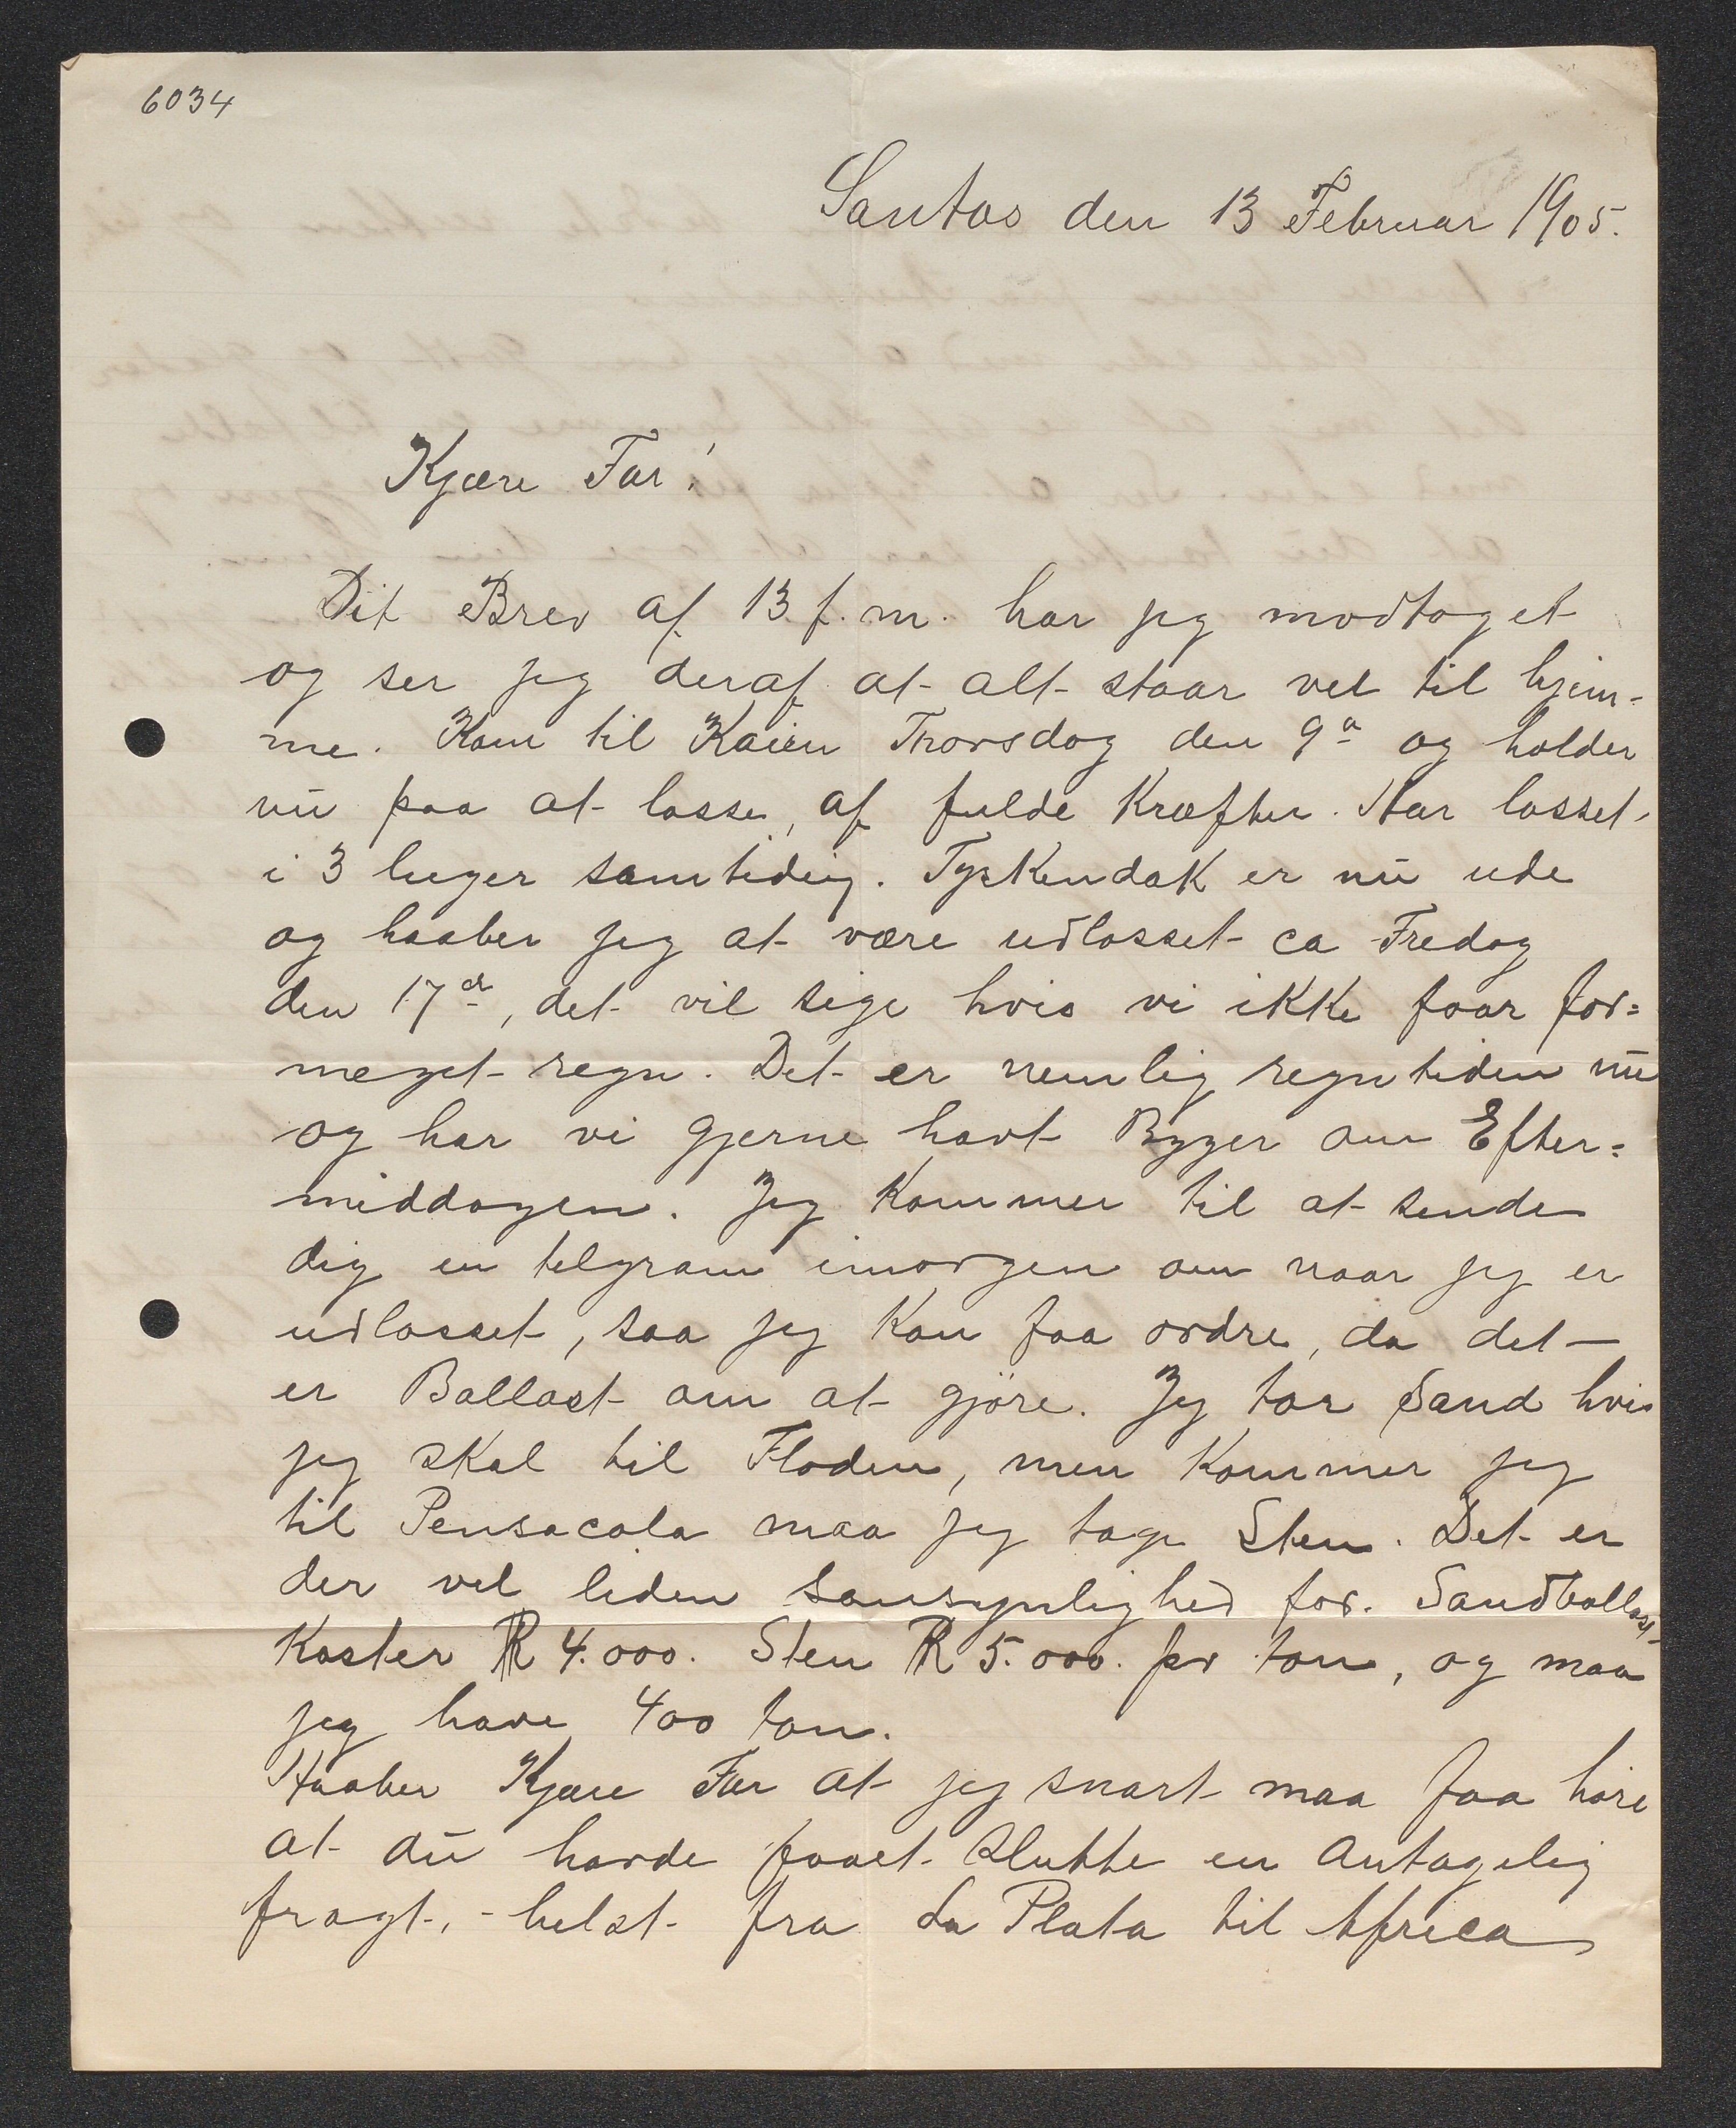 6034
Santos den 13 Februar 1905.
Kjære Far!
Dit Brev af 13 f.m. har jeg modtaget
og ser jeg deraf at alt staar vel til hjem-
me. Kom til Kaien Thorsdag den 9ª og holder
nu paa at losse, af fulde Kræfter. Har losset
i 3 luger samtidig. Tyskendak er nu ude
og haaber jeg at være udlosset ca Fredag
den 17de, det vil sige hvis vi ikke faar for=
meget regn. Det er nemlig regntiden nu
og har vi gjerne havt Byger om Efter=
middagen. Jeg Kommer til at sende
dig en telgram imorgen om naar jeg er
udlosset, saa jeg Kan faa ordre, da det
er Ballast om at gjöre. Jeg tar Sand hvis
jeg skal til Floden, men Kommer jeg
til Pensacola maa jeg tage Sten. Det er
der vel liden sansynlighed for. Sandballast
Koster R 4.000. Sten R 5.000. pr ton, og maa
jeg have 400 ton.
Haaber Kjære Far at jeg snart maa faa höre
at du havde faaet slutte en Antagelig
fragt, - helst fra La Plata til Africa